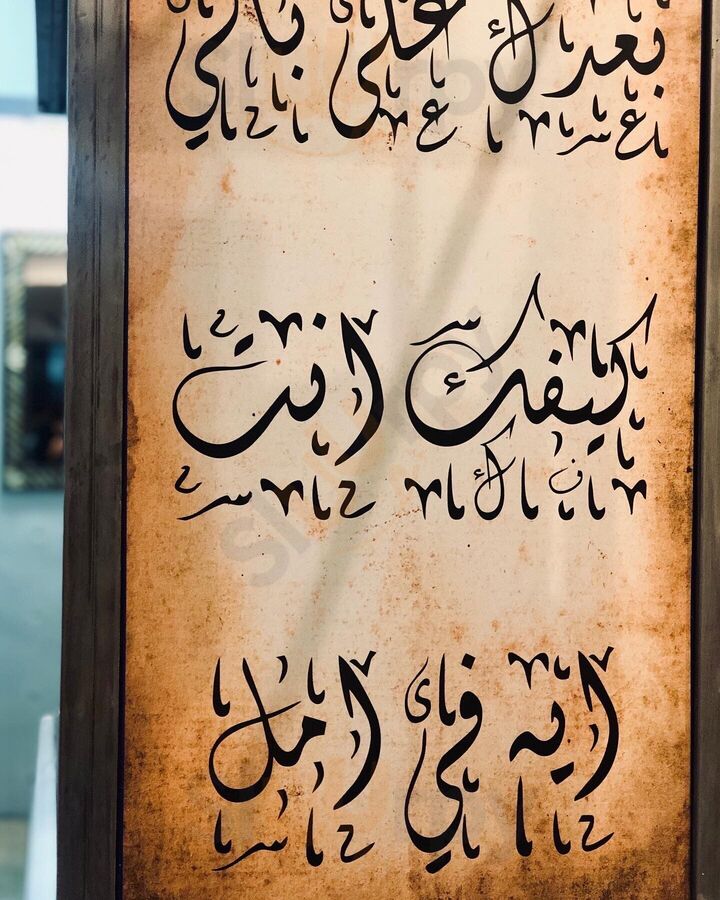 بعدك على بالي
كيفك انت
ايه في امل